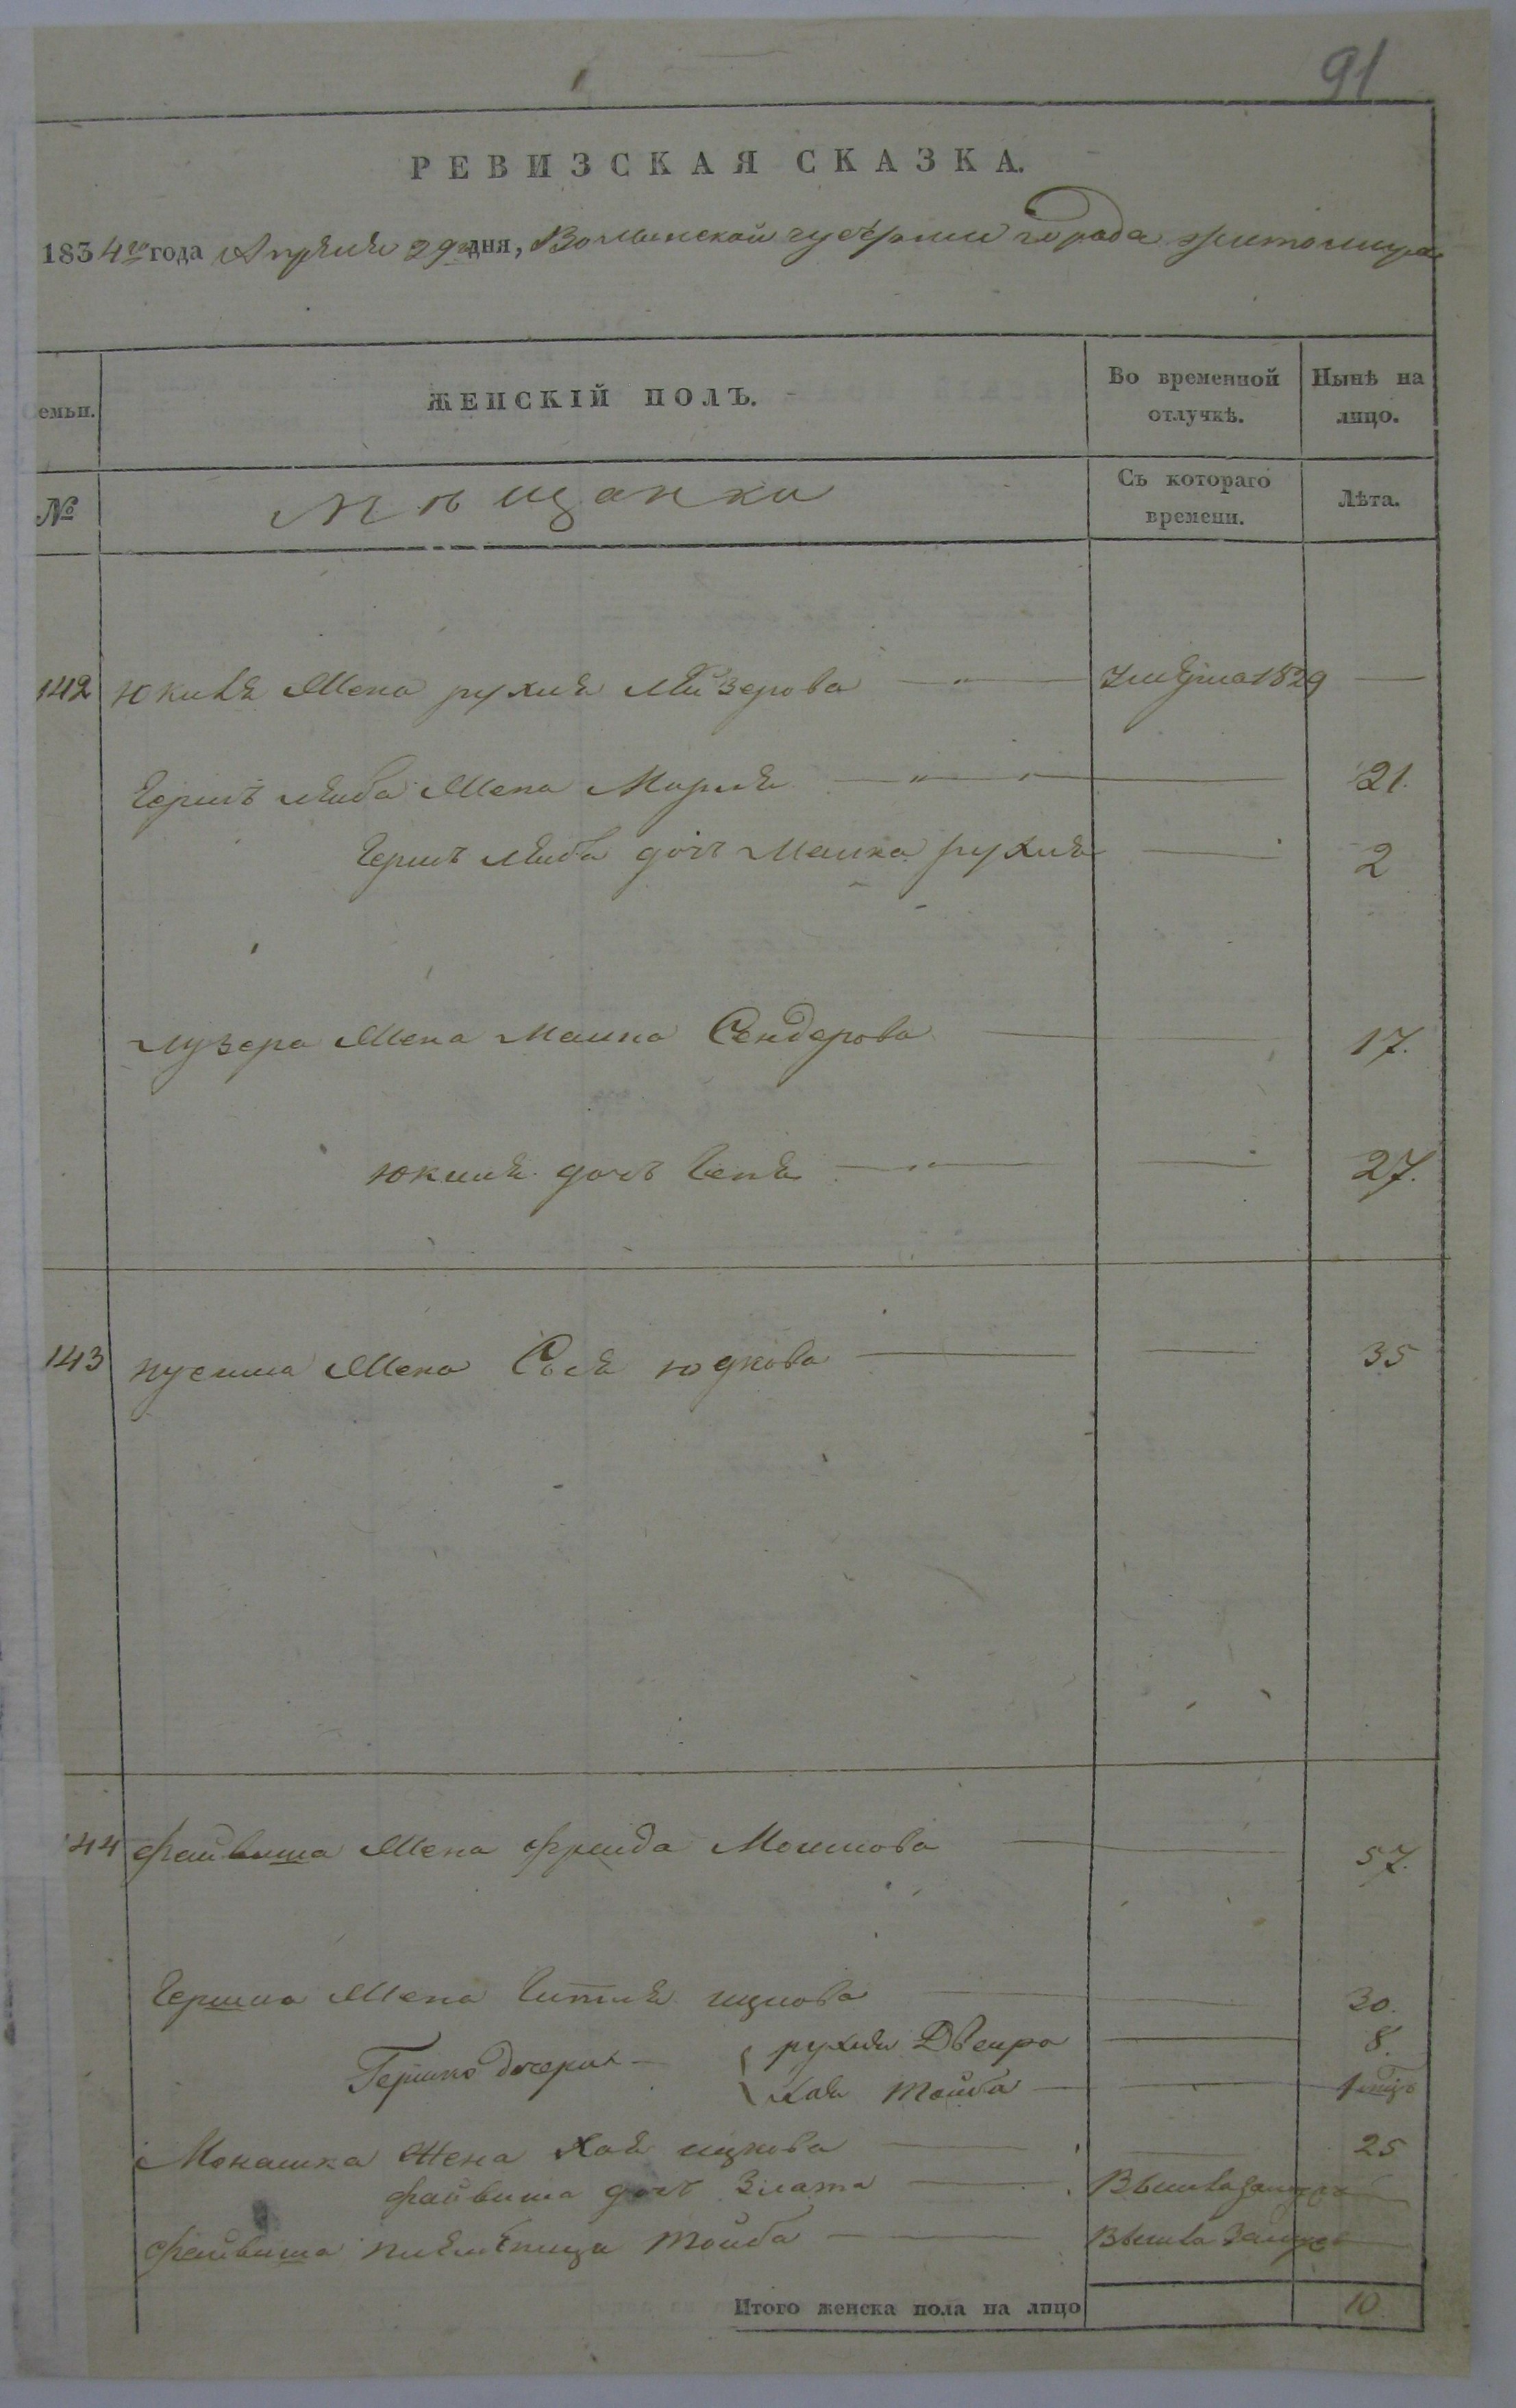 91
РЕВИЗСКАЯ СКАЗКА.
1834го года Апреля 29 дня, Волынской губернии города Житомира
Семьи. ЖЕНСКІЙ ПОЛЪ. Во временной отлучкѣ. Нынѣ на лицо.
№ Мѣщанки Съ котораго времени. Лѣта.
142 Юкиля Жена рухля Лейзерова 1829 —
Гершъ лейба Жена Мариля — 21.
Гершъ лейба дочь рухля — 2
лузера Жена Сендерова — 17.
юкиля дочь Геня — 27.
143 Жена Сося юдкова — 35
144 файвиша Жена фрейда Мошкова — 57.
Гершка Жена Гитля ицкова — 30.
Гершка дочери — рухля Двейра — 8.
Хая тойба — 1
Монашка Жена Хая ицкова — 25
файвиша дочь Злата — Вышла замужъ —
файвиша племѣница тойба — Вышла замужъ —
Итого женска пола на лицо 10